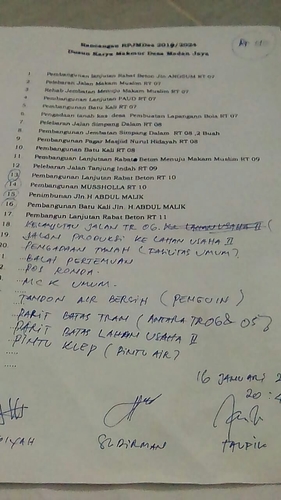 Rancangan RPJMDes 2019/2024
Dusun Karya Makmur Desa Medan Jaya
RT
1 Pembangunan lanjutan Rabat Beton Jln ANGGUM RT 07
2 Pelebaran Jalan Makam Muslim RT 07
3 Rehab Jembatan Menuju Makam Muslim RT 07
4 Pembangunan Lanjutan PAUD RT 07
5 Pembangunan Batu Kali RT 07
6 Pengadaan tanah kas desa Pembuatan Lapangann Bola RT 07
7 Pelebaran Jalan Simpang Dalam RT 08
8 Pembangunan Jembatan Simpang Dalam RT 08 ,2 Buah
9 Pembangunan Pagar Masjid Nurul Hidayah RT 08
10 Pembangunan Batu Kali RT 08
11 Pembangunan Lanjutaan Rabat Beton Menuju Makam Muslim RT 09
12 Pelebaran Jalan Tanjung Indah RT 09
13 Pembangunan Lanjutan Rabat Beton RT 10
14 Pembangunan MUSSHOLLA RT 10
15 Penimbunan Jln H ABDUL MALIK
16 Pembangunan Batu Kali Jln H ABDUL MALIK
17 Pembangun Lanjutan Rabat Beton RT 11
18 KELANJUTAN JALAN TR 06. KE LAHAN USAHA II (
19 JALAN PRODUKSI KE LAHAN USAHA II
20 PENGADAAN TANAH (FASILITAS UMUM)
BALAI PERTEMUAN
POS RONDA.
MCK UMUM.
TANDON AIR BERSIH (PENGUIN)
PARIT BATAS TRAN (ANTARA TR06 & 05)
PARIT BATAS LAHAN USAHA II
PINTU KLEP (PINTU AIR)
16 JANUARI 2
20:
SUDIRMAN
TAUFIK